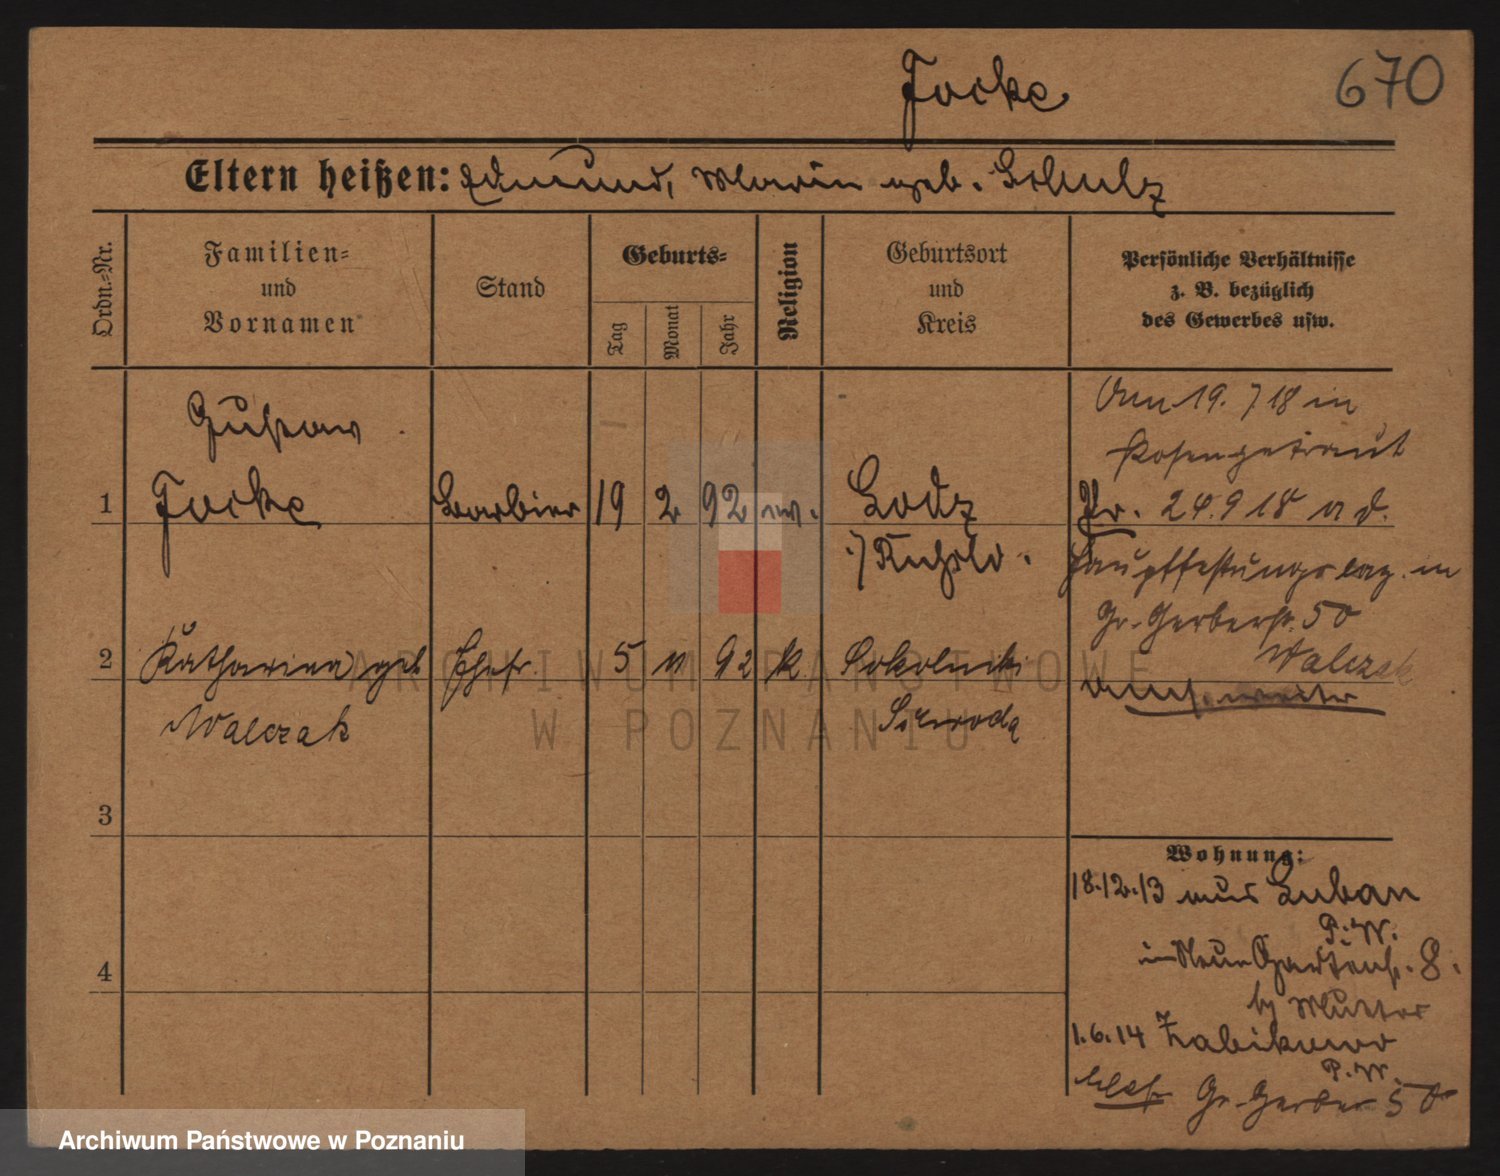 Focke
670
Eltern heißen: Edmund, Maria geb. Schulz
Ordn.-Nr.
Familien-
und
Vornamen
Stand
Geburts-
Tag
Monat
Jahr
Religion
Geburtsort
und
Kreis
Persönliche Verhältnisse
z. B. bezüglich
des Gewerbes usw.
Gustav
1 Focke Barbier 19 2 92 ev. Lodz
i/ Rußld.
2 Katharina geb Ehefr. 5 11 92 k Sokolniki
Walczak Schroda
3
4
Am 19. 7 18 in
Posen getraut
Pr. 24.9 18 a d.
Hauptfestungslaz. in
Gr. Gerberstr. 50
Walczak
Wohnung:
18.12.13 aus Luban
P.W.
in Neue Gartenstr. 8.
by Mutter
1.6.14 Zabikowo
P.W.
Gr. Gerber 50
ARCHIWUM PAŃSTWOWE
W POZNANIU
Archiwum Państwowe w Poznaniu